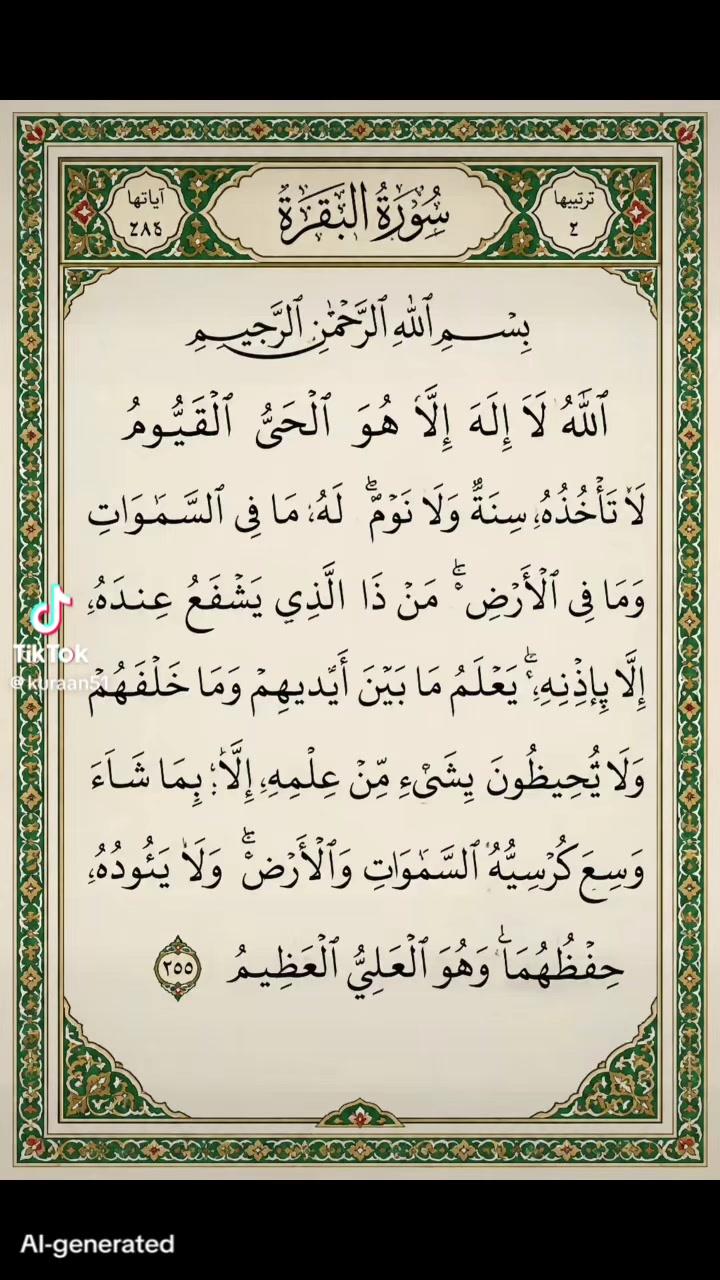 ترتيبها
سُورَةُ البَقَرَةُ
آياتها
بِسْمِ ٱللَّهِ ٱلرَّحْمَٰنِ ٱلرَّحِيمِ
ٱللَّهُ لَا إِلَهَ إِلَّا هُوَ ٱلْحَىُّ ٱلْقَيُّومُ
لَا تَأْخُذُهُۥ سِنَةٌ وَلَا نَوْمٌ ۚ لَهُۥ مَا فِى ٱلسَّمَٰوَاتِ
وَمَا فِى ٱلْأَرْضِ ۚ مَنْ ذَا الَّذِي يَشْفَعُ عِندَهُۥ
إِلَّا بِإِذْنِهِۦ ۚ يَعْلَمُ مَا بَيْنَ أَيْديهِمْ وَمَا خَلْفَهُمْ
وَلَا تُحِيظُونَ بِشَىْءٍ مِّنْ عِلْمِهِۦ إِلَّا بِمَا شَاءَ
وَسِعَ كُرْسِيُّهُ ٱلسَّمَٰوَاتِ وَٱلْأَرْضَ ۚ وَلَا يَئُودُهُۥ
حِفْظُهُمَا ۚ وَهُوَ ٱلْعَلِيُّ ٱلْعَظِيمُ ٢٥٥
TikTok
@kuraan51
AI-generated